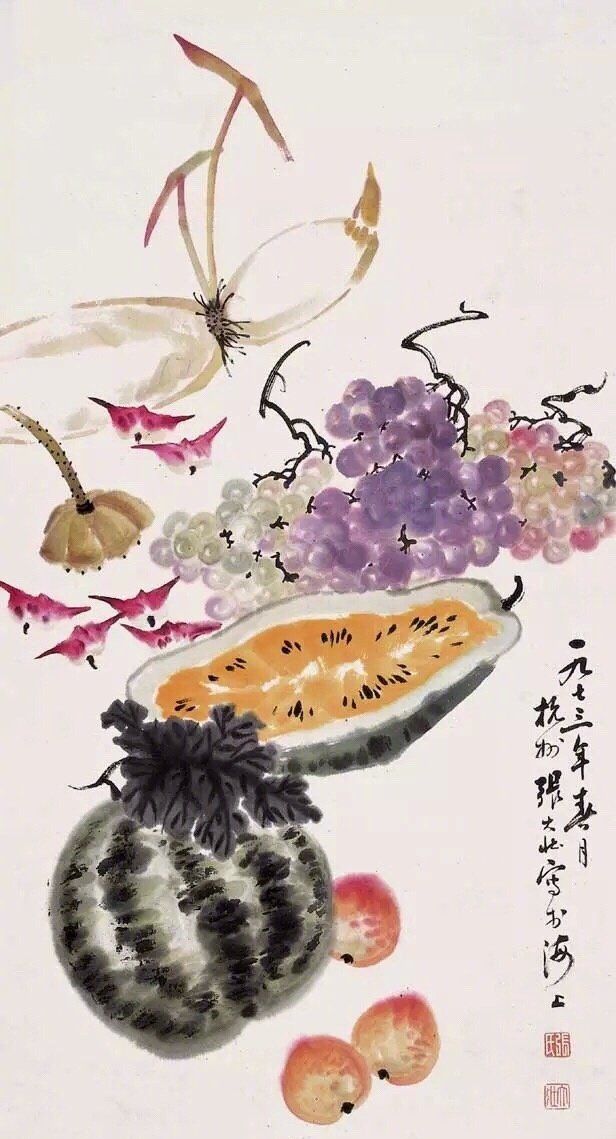 一九七三年春月
杭州張大壯寫於海上
張氏
大壯